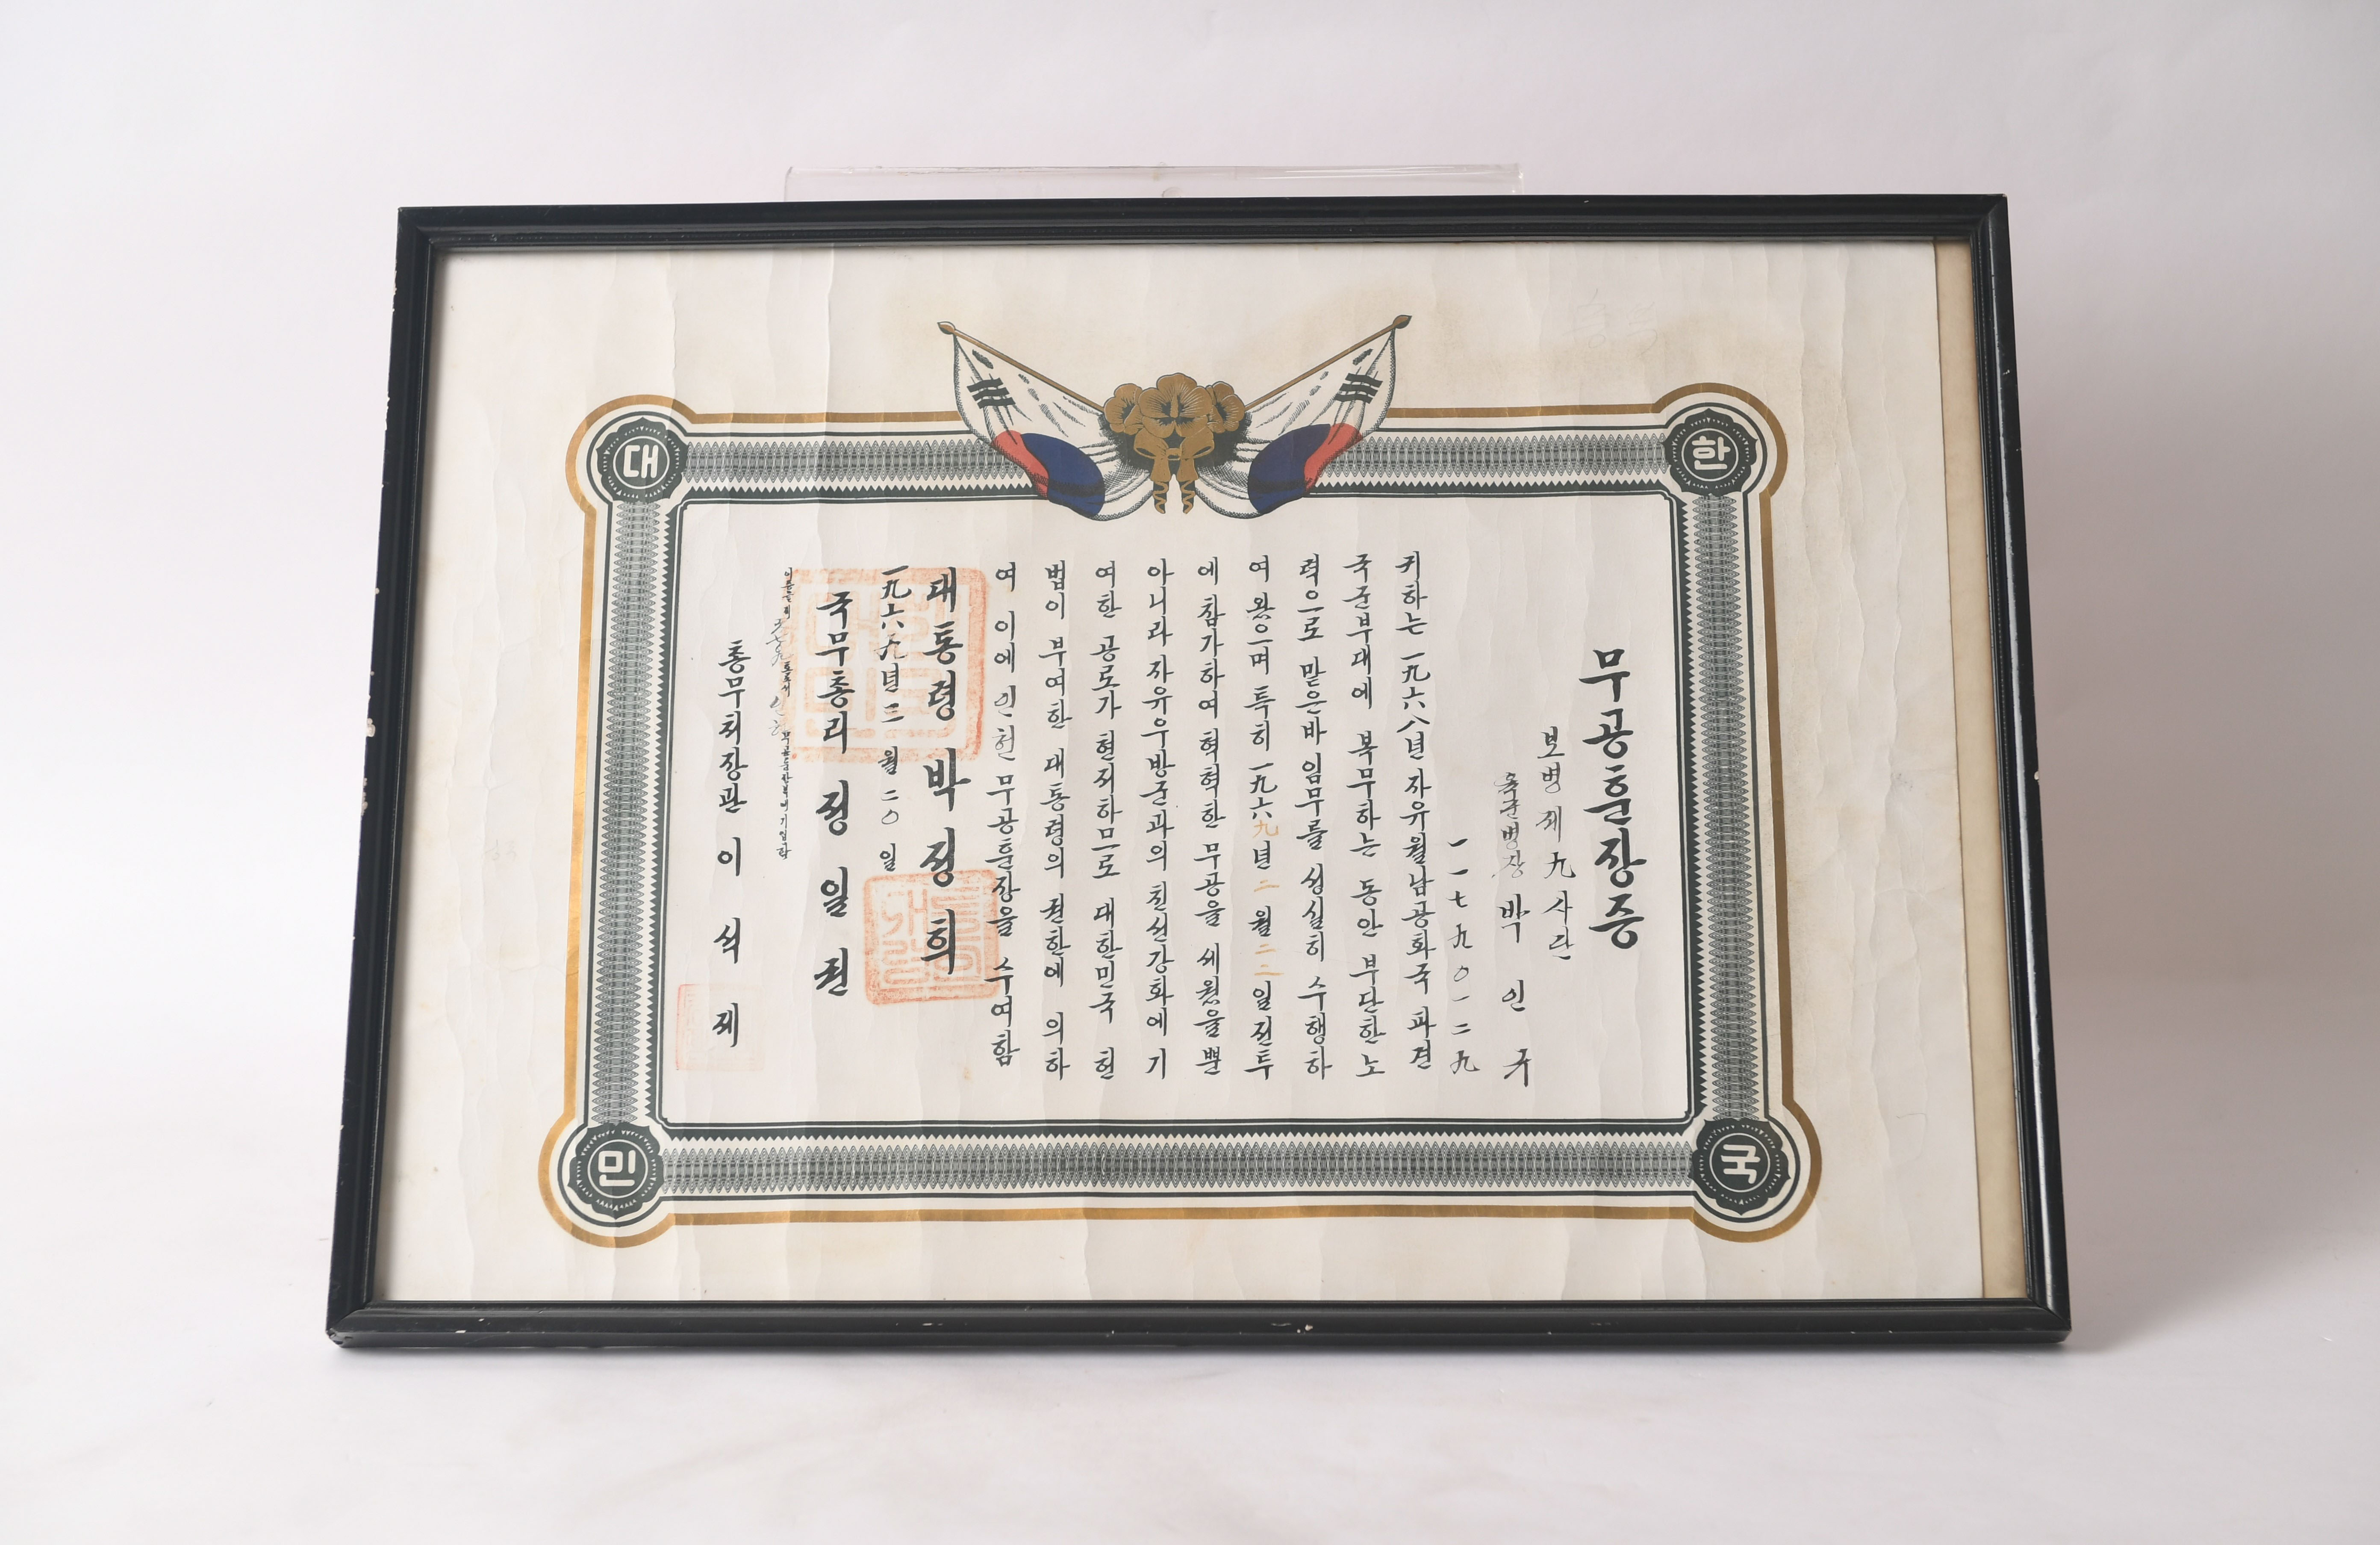 대 한
민 국
무공훈장증
보병 제九사단
육군병장 박인규
一一七九〇一二九
귀하는 一九六八년 자유월남공화국 파견
국군부대에 복무하는 동안 부단한 노
력으로 맡은바 임무를 성실히 수행하
여 왔으며 특히 一九六九년 二월 二二일 전투
에 참가하여 혁혁한 무공을 세웠을 뿐
아니라 자유우방군과의 친선강화에 기
여한 공로가 현저하므로 대한민국 헌
법이 부여한 대통령의 권한에 의하
여 이에 인헌 무공훈장을 수여함
대통령 박정희
一九六九년 三월 二〇일
국무총리 정일권
무공훈장부에 기입함
총무처장관 이석제